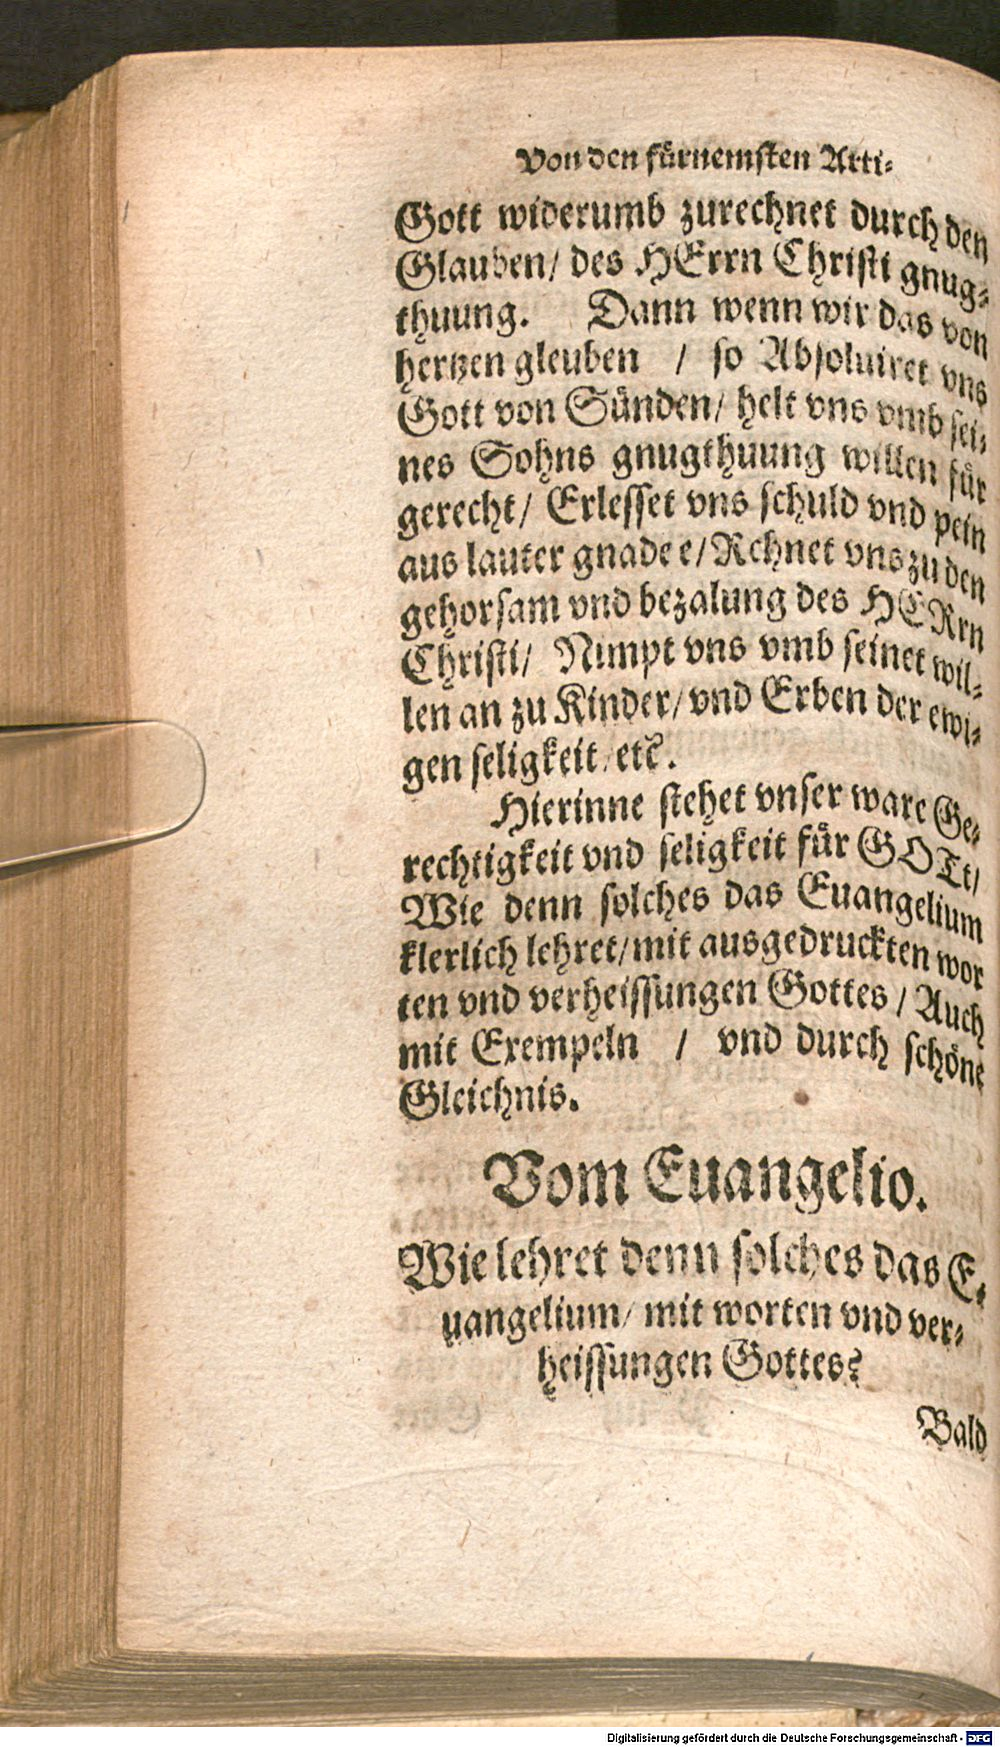 Von den fürnemsten Arti-
Gott widerumb zurechnet durch den
Glauben/ des HErrn Christi gnug-
thuung. Dann wenn wir das von
hertzen gleuben / so Absoluiret vns
Gott von Sünden/ helt vns vmb sei-
nes Sohns gnugthuung willen für
gerecht/ Erlesset vns schuld vnd pein
aus lauter gnade e/ Rchnet vns zu den
gehorsam vnd bezalung des HERrn
Christi/ Nimpt vns vmb seinet wil-
len an zu Kinder/ vnd Erben der ewi-
gen seligkeit/ etc.
Hierinne stehet vnser ware Ge-
rechtigkeit vnd seligkeit für GOTt/
Wie denn solches das Euangelium
klerlich lehret/ mit ausgedruckten wor
ten vnd verheissungen Gottes / Auch
mit Exempeln / vnd durch schöne
Gleichnis.
Vom Euangelio.
Wie lehret denn solches das E-
uangelium/ mit worten vnd ver-
heissungen Gottes?
Bald
Digitalisierung gefördert durch die Deutsche Forschungsgemeinschaft - DFG